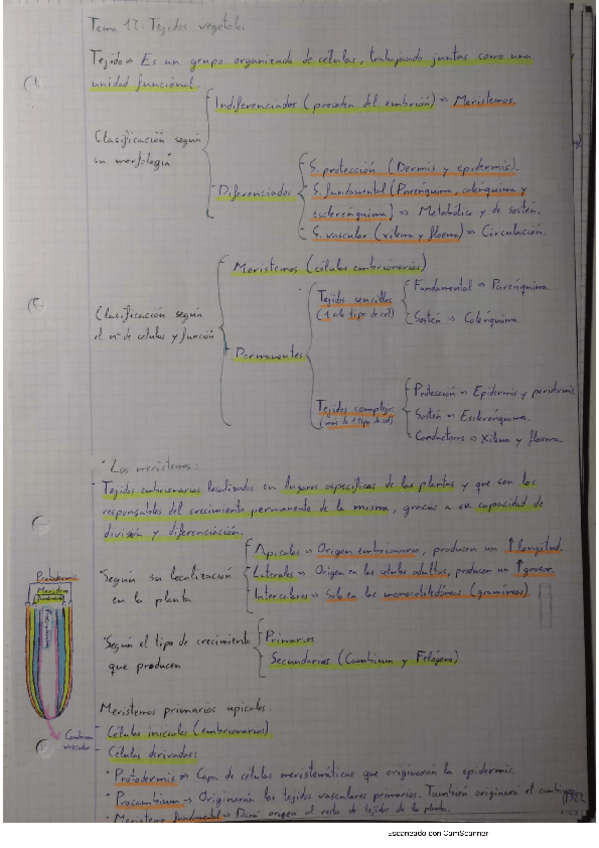 Tema 12: Tejidos vegetales
Tejido → Es un grupo organizado de células, trabajando juntas como una
unidad funcional.
Clasificación según
su morfología
Indiferenciados (proceden del embrión) → Meristemos.
Diferenciados
S. protección (Dermis y epidermis).
S. fundamental (Parénquima, colénquima y
esclerénquima) → Metabólico y de sostén.
S. vascular (xilema y floema) → Circulación.
Clasificación según
el nº de células y función
Meristemos (células embrionarias)
Permanentes
Tejidos sencillos
(1 solo tipo de cel)
Fundamental → Parénquima
Sostén → Colénquima
Tejidos complejos
(más de 1 tipo de cel)
Protección → Epidermis y peridermis
Sostén → Esclerénquima.
Conductores → Xilema y floema.
· Los meristemos:
- Tejidos embrionarios localizados en lugares específicos de las plantas y que son los
responsables del crecimiento permanente de la misma, gracias a su capacidad de
división y diferenciación.
Según su localización
en la planta
Apicales → Origen embrionario, producen un ↑ longitud.
Laterales → Origen en las células adultas, producen un ↑ grosor.
Intercalares → Solo en las monocotiledóneas (gramíneas).
Según el tipo de crecimiento
que producen
Primarios
Secundarios (Cambium y Felógeno)
Protodermis
Meristemo
fundamental
Procambium
Cambium
vascular
Meristemos primarios apicales:
- Células iniciales (embrionarias)
- Células derivadas:
· Protodermis → Capa de células meristemáticas que originarán la epidermis.
· Procambium → Originarán los tejidos vasculares primarios. También originará el cambium
· Meristemo fundamental → Dará origen al resto de tejidos de la planta.
Escaneado con CamScanner